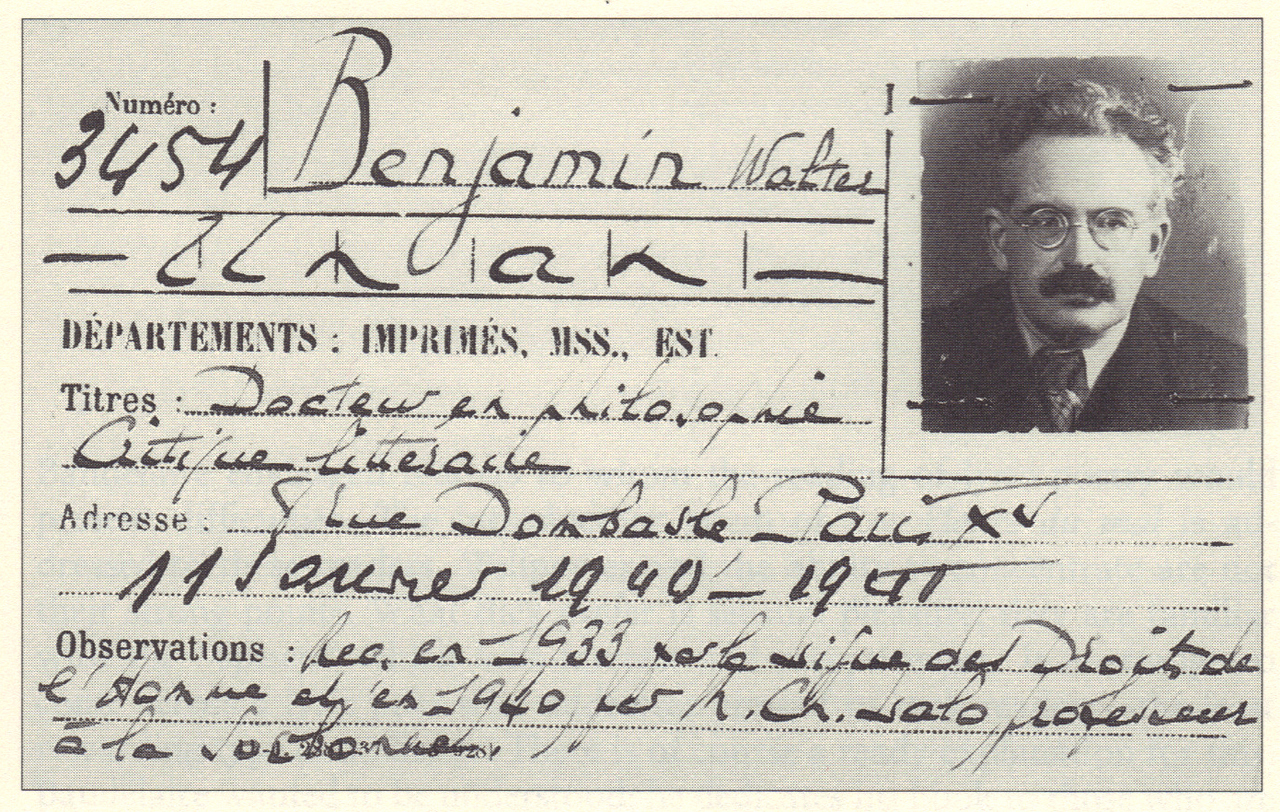 Numéro :
3454 Benjamin Walter
DÉPARTEMENTS : IMPRIMÉS, MSS., EST.
Titres : Docteur en philosophie
Critique littéraire
Adresse : rue Dombasle - Paris XV
11 Janvier 1940 - 1941
Observations : Rec. en 1933 par la Ligue des Droits de
l'Homme et en 1940 par M. Ch. Lalo professeur
à la Sorbonne